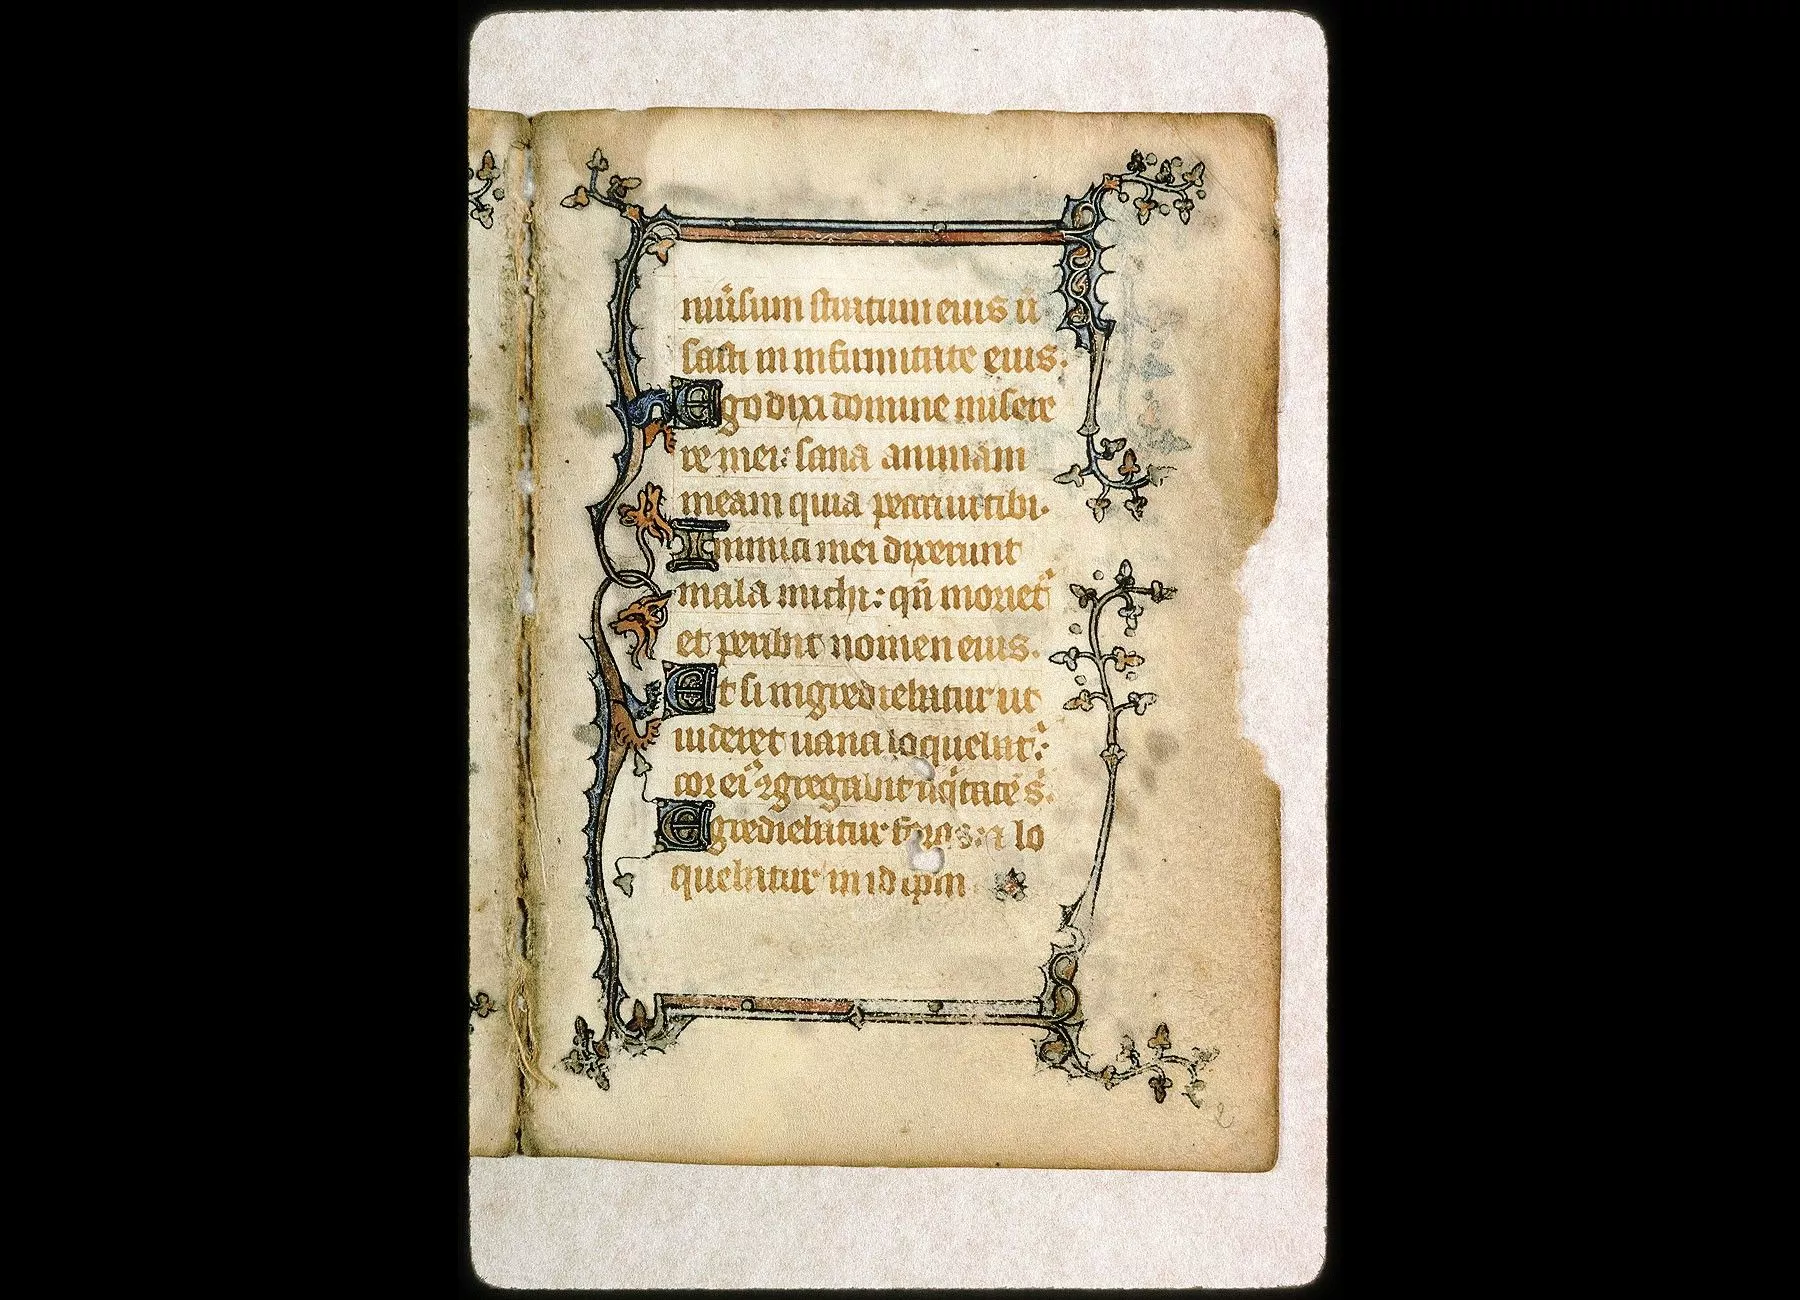 niũsum stratum eius ũ
sasti in infirmitate eius.
Ego dixi domine misere
re mei: sana animam
meam quia peccaui tibi.
Inimici mei dixerunt
mala michi: qñ moriet᷑
et peribit nomen eius.
Et si ingrediebatur ut
uideret uana loquebat᷑:
cor ei᷒ ꝯgregabit iiq̃tatẽ s᷒.
Egrediebatur foras: ⁊ lo
quebatur in id ip̃m